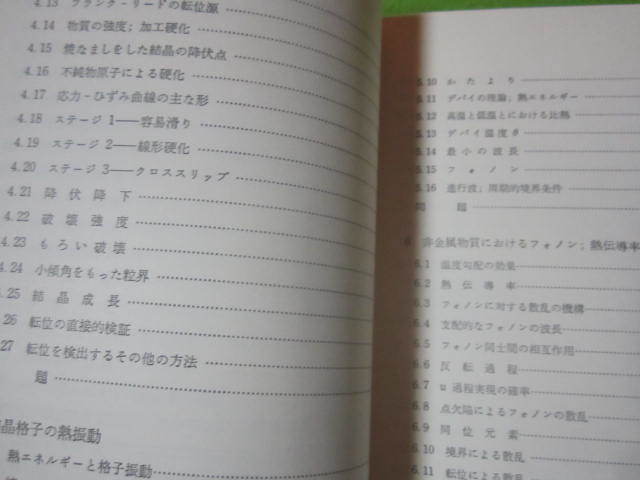 4.13 フランク-リードの転位源
4.14 物質の強度; 加工硬化
4.15 焼なましをした結晶の降伏点
4.16 不純物原子による硬化
4.17 応力-ひずみ曲線の主な形
4.18 ステージ 1——容易滑り
4.19 ステージ 2——線形硬化
4.20 ステージ 3——クロススリップ
4.21 降伏降下
4.22 破壊強度
4.23 もろい破壊
4.24 小傾角をもった粒界
4.25 結晶成長
26 転位の直接的検証
27 転位を検出するその他の方法
題
晶格子の熱振動
熱エネルギーと格子振動
5.10 かたより
5.11 デバイの理論; 熱エネルギー
5.12 高温と低温とにおける比熱
5.13 デバイ温度 θ
5.14 最小の波長
5.15 フォノン
5.16 進行波; 周期的境界条件
問題
6 非金属物質におけるフォノン; 熱伝導率
6.1 温度勾配の効果
6.2 熱伝導率
6.3 フォノンに対する散乱の機構
6.4 支配的なフォノンの波長
6.5 フォノン同士間の相互作用
6.6 反転過程
6.7 u 過程実現の確率
6.8 点欠陥によるフォノンの散乱
6.9 同位元素
6.10 境界による散乱
6.11 転位による散乱